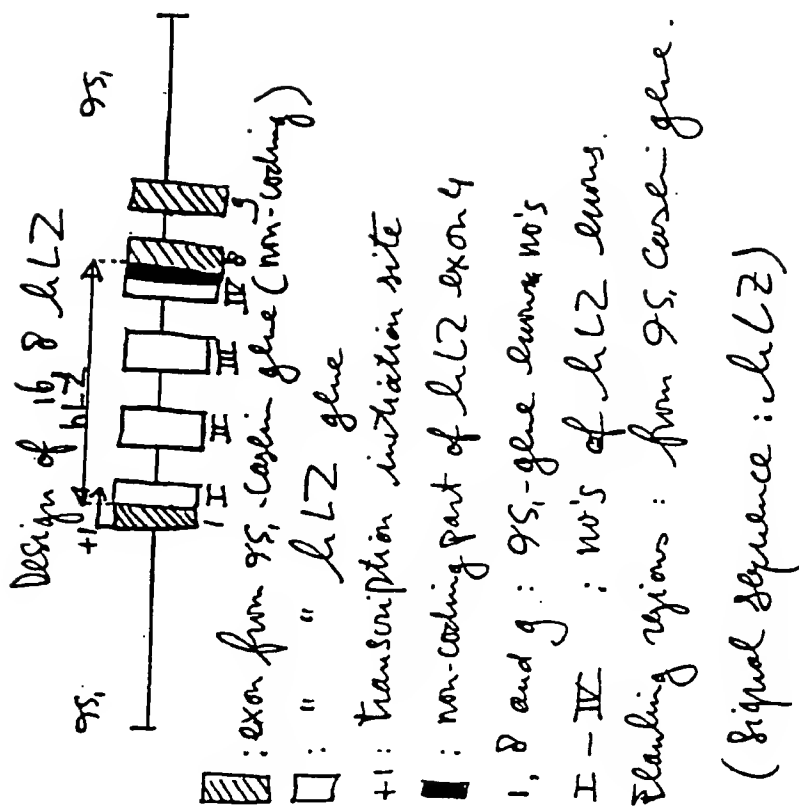 Design of 16,8 hLZ
αS₁ +1 hLZ αS₁
1 I II III IV 8 9
: exon from αS₁-casein gene (non-coding)
: " " hLZ gene
+1: transcription initiation site
: non-coding part of hLZ exon 4
1, 8 and 9 : αS₁-gene exon no's
I – IV : no's of hLZ exons.
Flanking regions : from αS₁ casein gene.
(Signal sequence : hLZ)